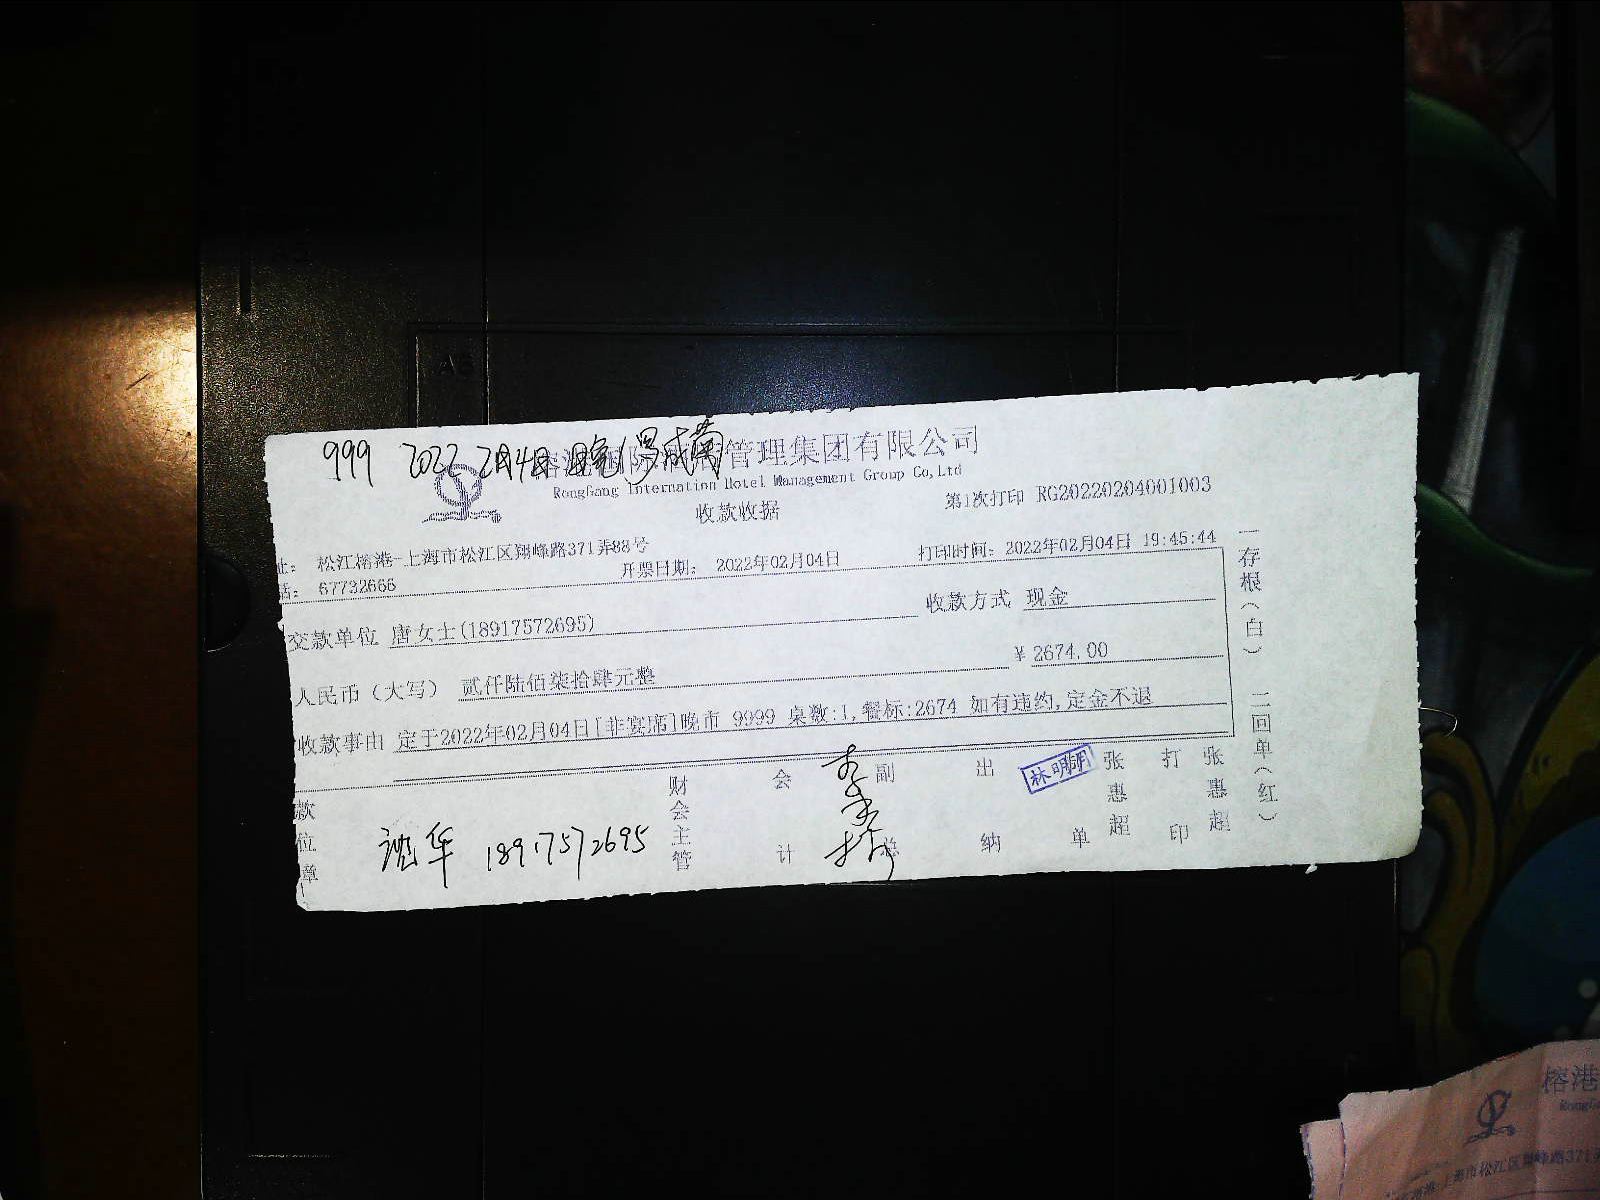 999 2022 2月4日
榕港国际酒店管理集团有限公司
RongGang Internation Hotel Management Group Co,Ltd
收款收据
第1次打印 RG20220204001003
址: 松江榕港-上海市松江区翔峰路371弄88号
话: 67732666
开票日期: 2022年02月04日
打印时间: 2022年02月04日 19:45:44
交款单位 唐女士(18917572695)
收款方式 现金
人民币（大写） 贰仟陆佰柒拾肆元整
¥ 2674.00
收款事由 定于2022年02月04日[非宴席]晚市 9999 桌数:1,餐标:2674 如有违约,定金不退
款位章
18917572695
财会主管
会计
副总
出纳
林明
单 张惠超
打印 张惠超
一存根(白) 二回单(红)
A6
榕港
RongGa
上海市松江区翔峰路371弄